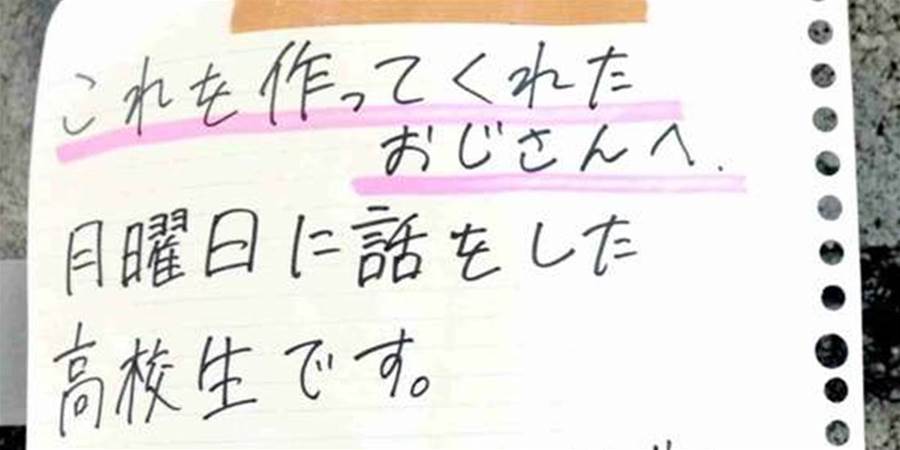 これを作ってくれた
おじさんへ.
月曜日に話をした
高校生です。